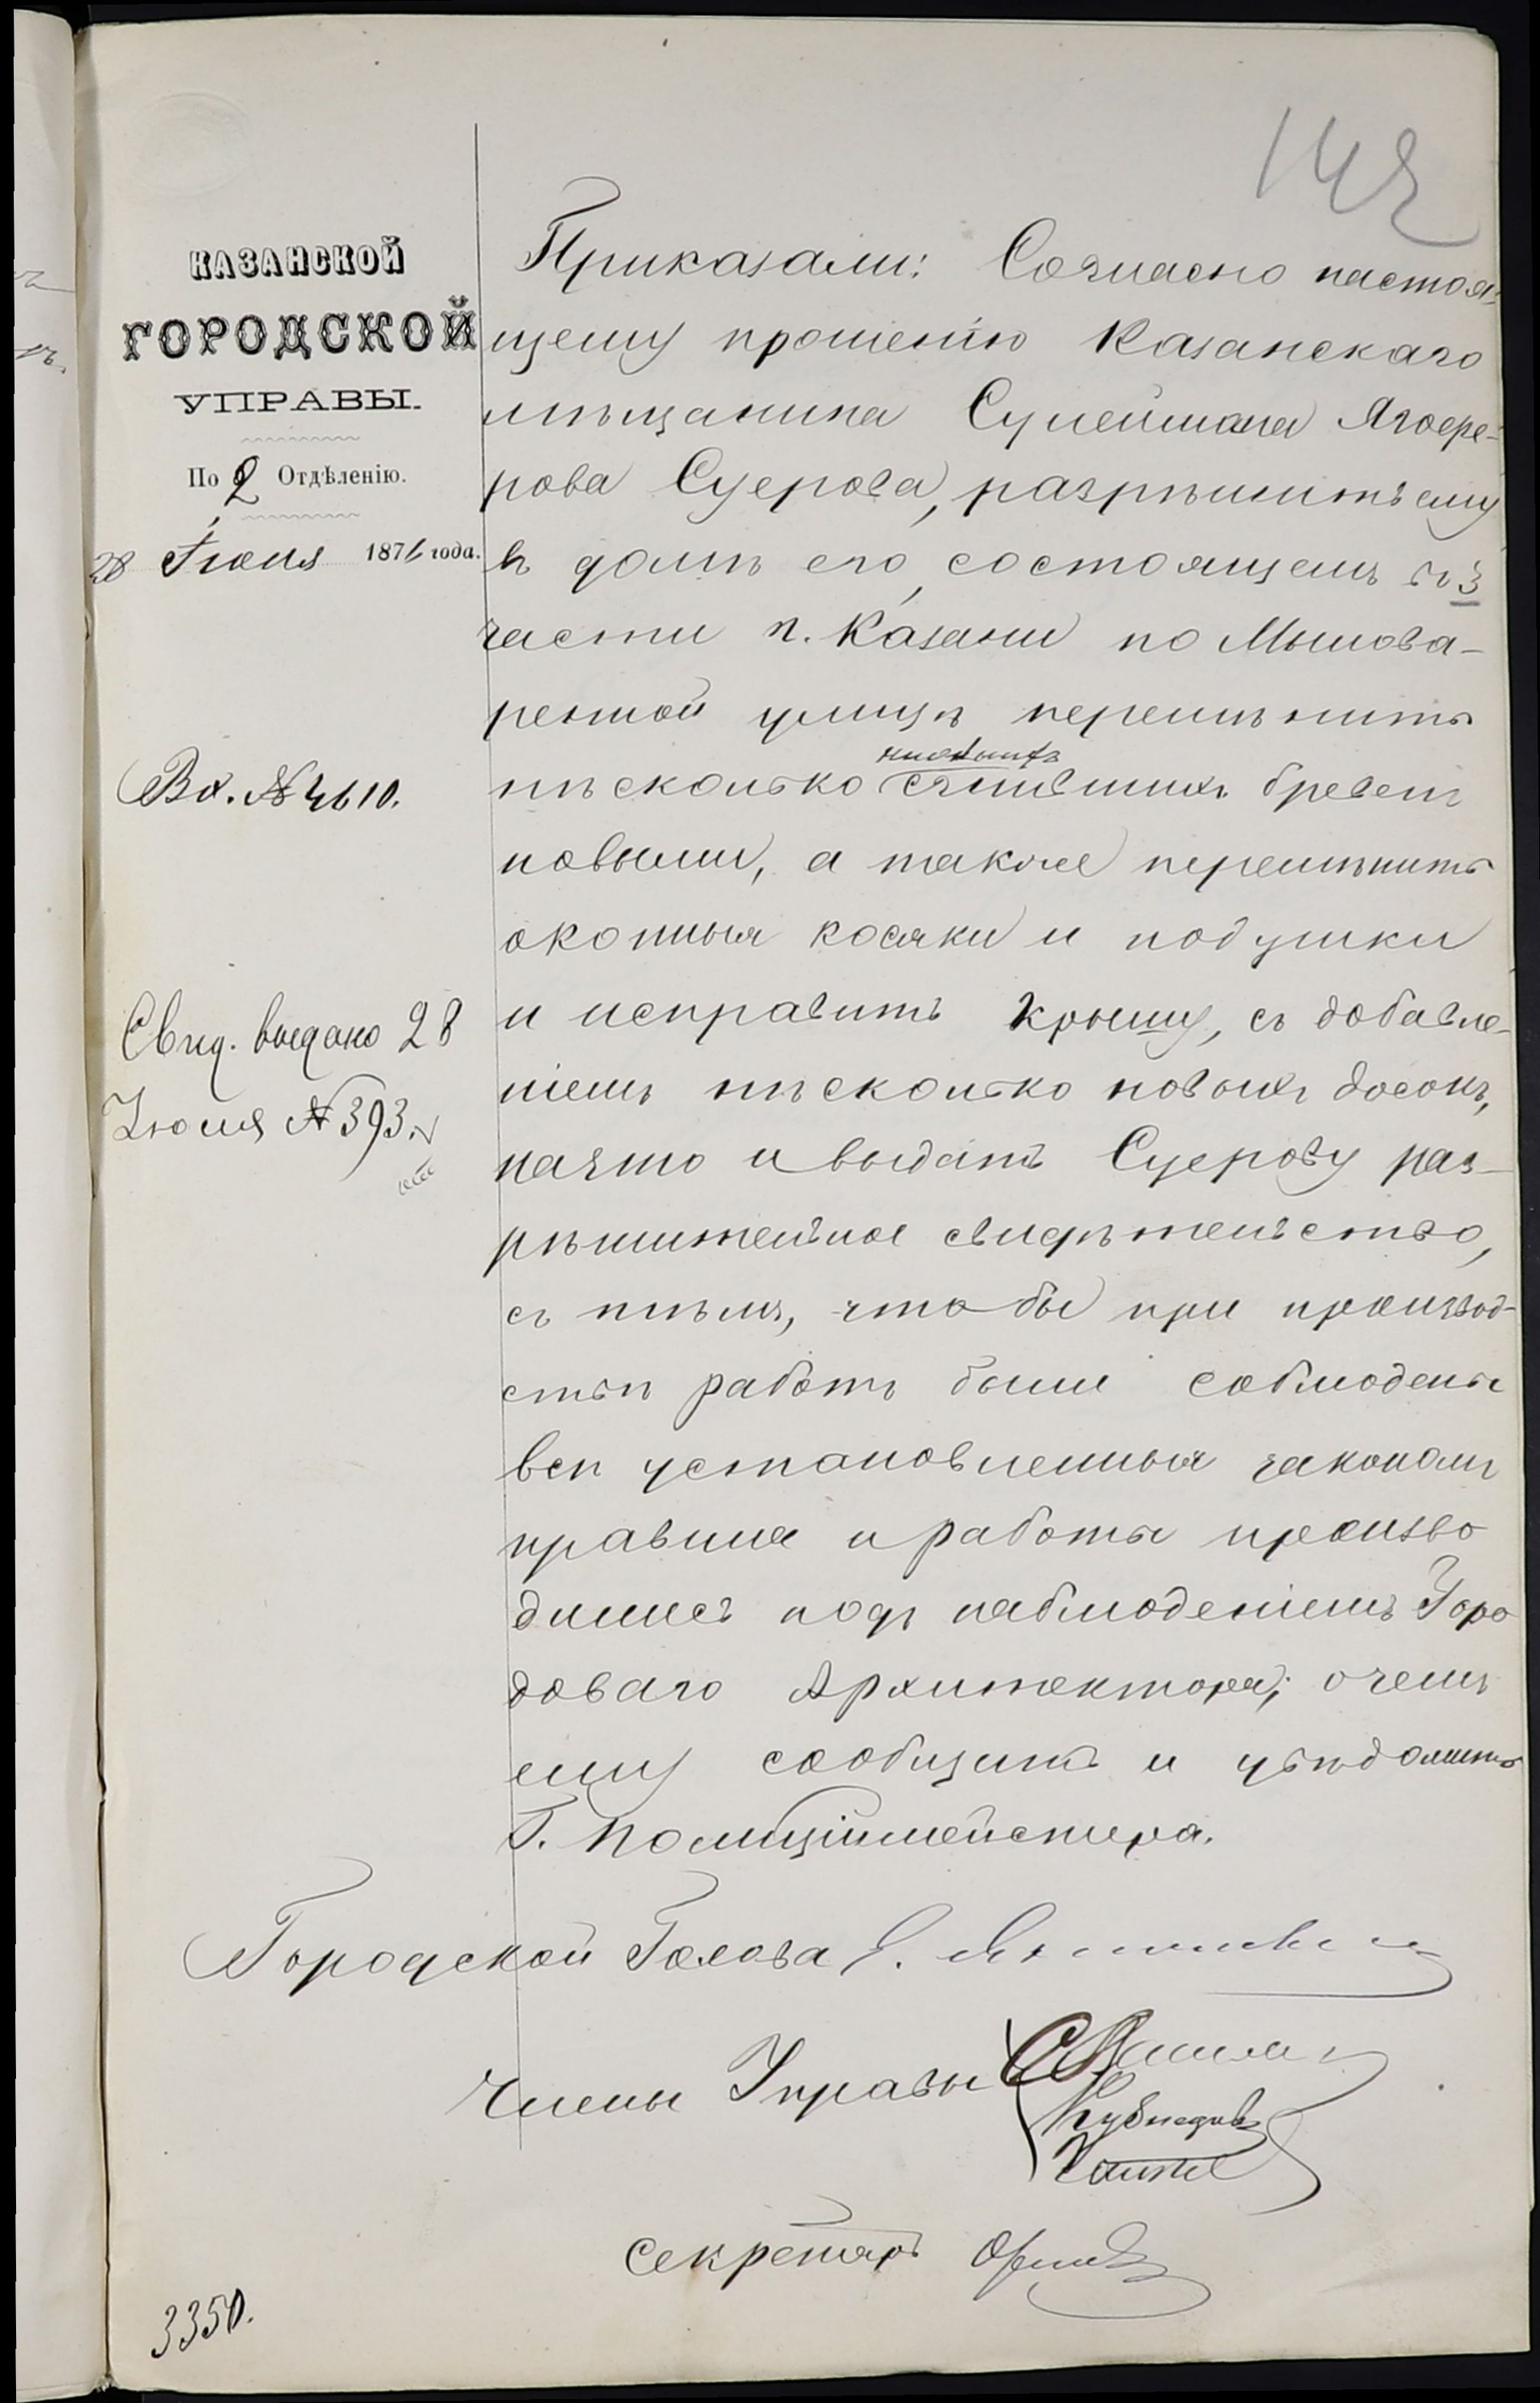 142
КАЗАНСКОЙ
ГОРОДСКОЙ
УПРАВЫ.
По 2 Отдѣленію.
28 Іюня 1876 года.
Вх. № 4610.
Свид. выдано 28
Іюля № 393.
Приказали: Согласно настоя-
щему прошенію Казанскаго
мѣщанина Сулеймана Ягофе-
рова Суерова, разрѣшить ему
въ домѣ его, состоящемъ въ 3
части г. Казани по Мылова-
ренной улицѣ перемѣнить
нѣсколько сгнившихъ бревенъ
новыми, а также перемѣнить
оконныя косяки и подушки
и исправить крышу, съ добавле-
ніемъ нѣсколько новыхъ досокъ,
на что и выдать Суерову раз-
рѣшительное свидѣтельство,
съ тѣмъ, что бы при производ-
ствѣ работъ были соблюдены
всѣ установленныя закономъ
правила и работы произво
дились подъ наблюденіемъ Горо
доваго Архитектора; о чемъ
ему сообщить и увѣдомить
Г. Полиціймейстера.
Городской Голова
Члены Управы
Секретарь
3350.